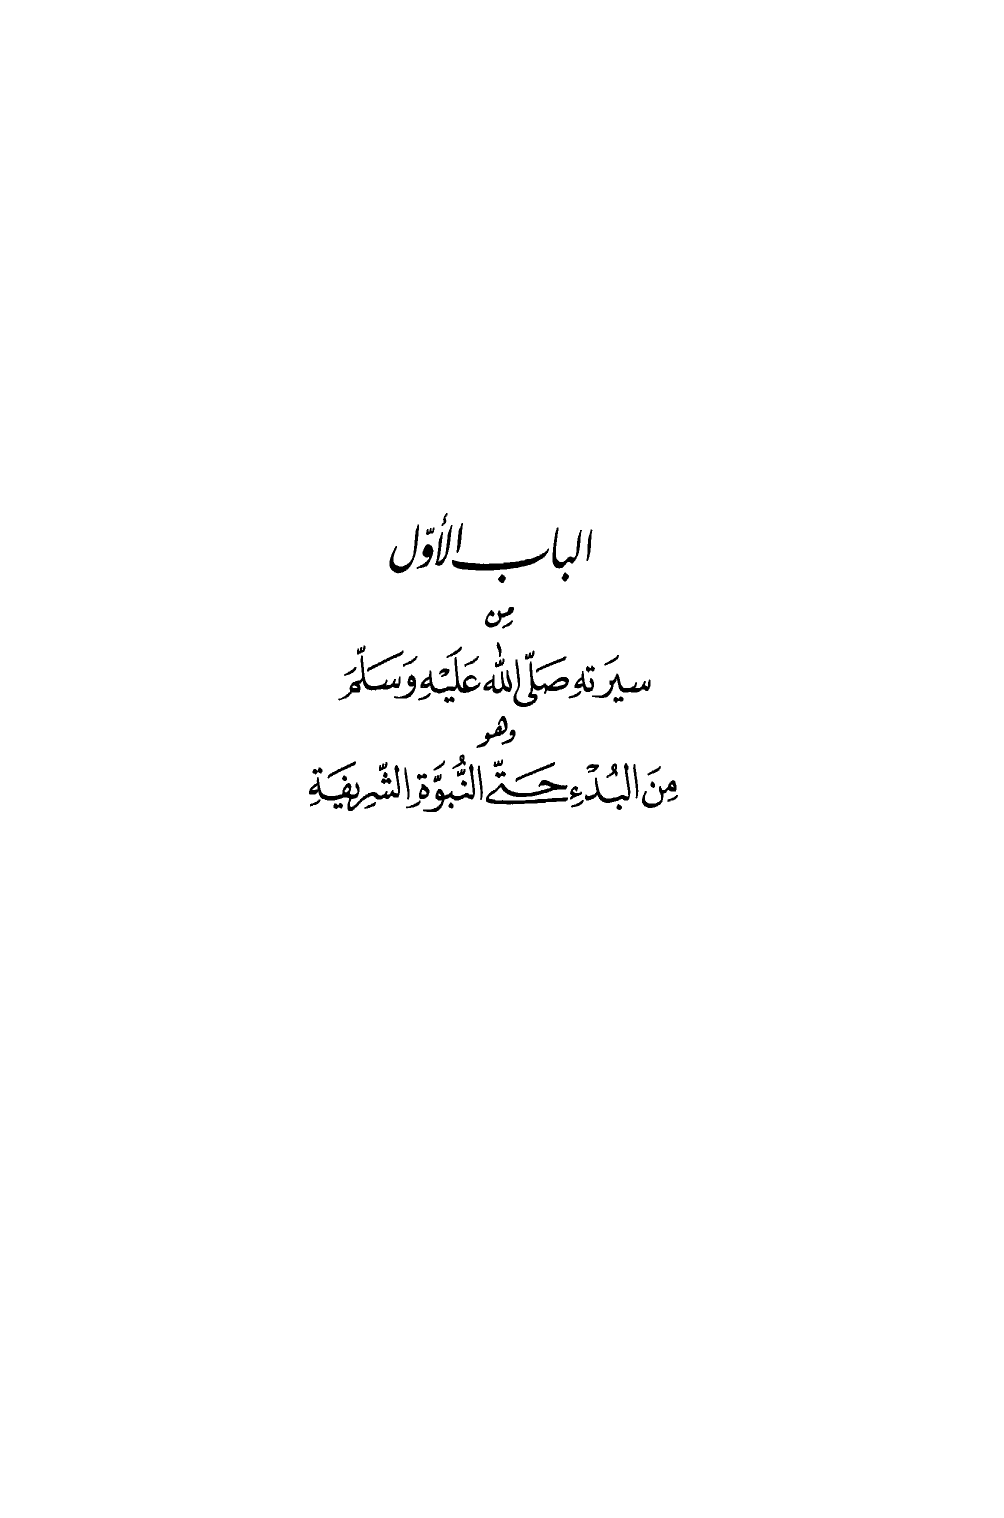 الباب الأوّل
مِن
سيَرتهِ صَلّى الله عَلَيْهِ وَسَلّمَ
وهو
مِنَ البُدْءِ حَتّى النُّبوَّةِ الشّرِيفَةِ